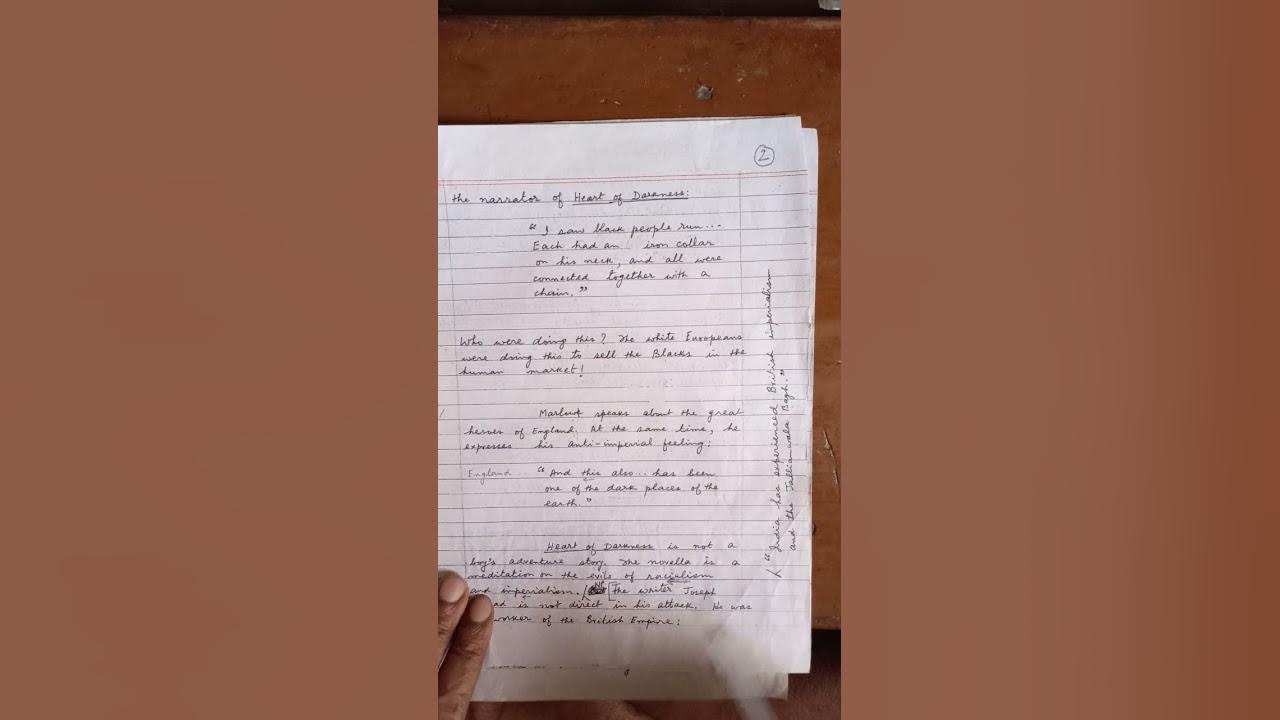 2
the narrator of Heart of Darkness:
"I saw black people run...
Each had an iron collar
on his neck, and all were
connected together with a
chain."
Who were doing this? The white Europeans
were doing this to sell the Blacks in the
human market!
Marlow speaks about the great
heroes of England. At the same time, he
expresses his anti-imperial feeling:
England "And this also... has been
one of the dark places of the
earth."
Heart of Darkness is not a
boy's adventure story. The novella is a
meditation on the evils of racialism
and imperialism. [The writer Joseph
ad is not direct in his attack. He was
worker of the British Empire:
"India has experienced British imperialism
and the Jallianwala Bagh."